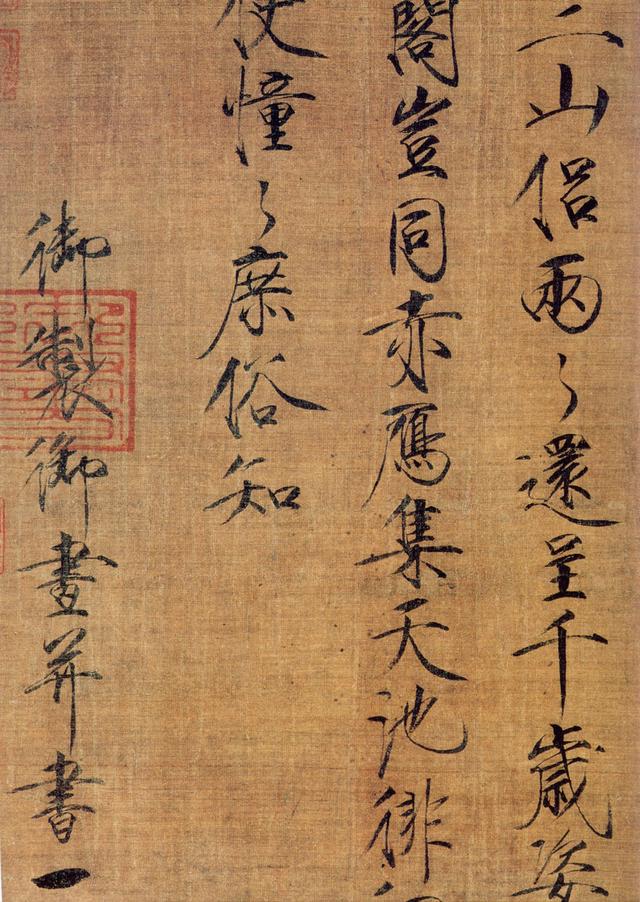 三山侶兩〻還呈千歲姿
閣豈同赤鴈集天池徘
使憧〻庶俗知
御製御畫并書一